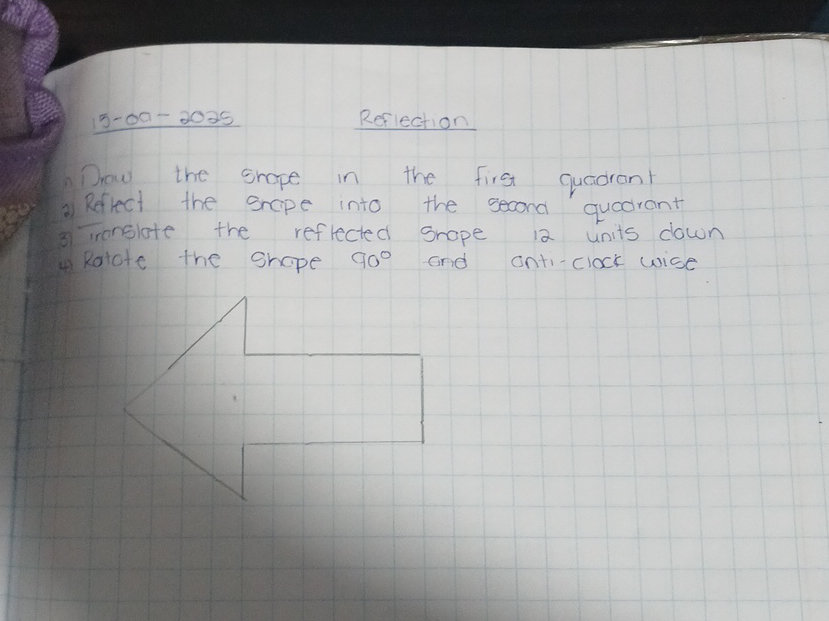 15-09-2025 Reflection
1) Draw the shape in the first quadrant
2) Reflect the shape into the second quadrant
3) Translate the reflected shape 12 units down
4) Rotate the shape 90° and anti-clock wise